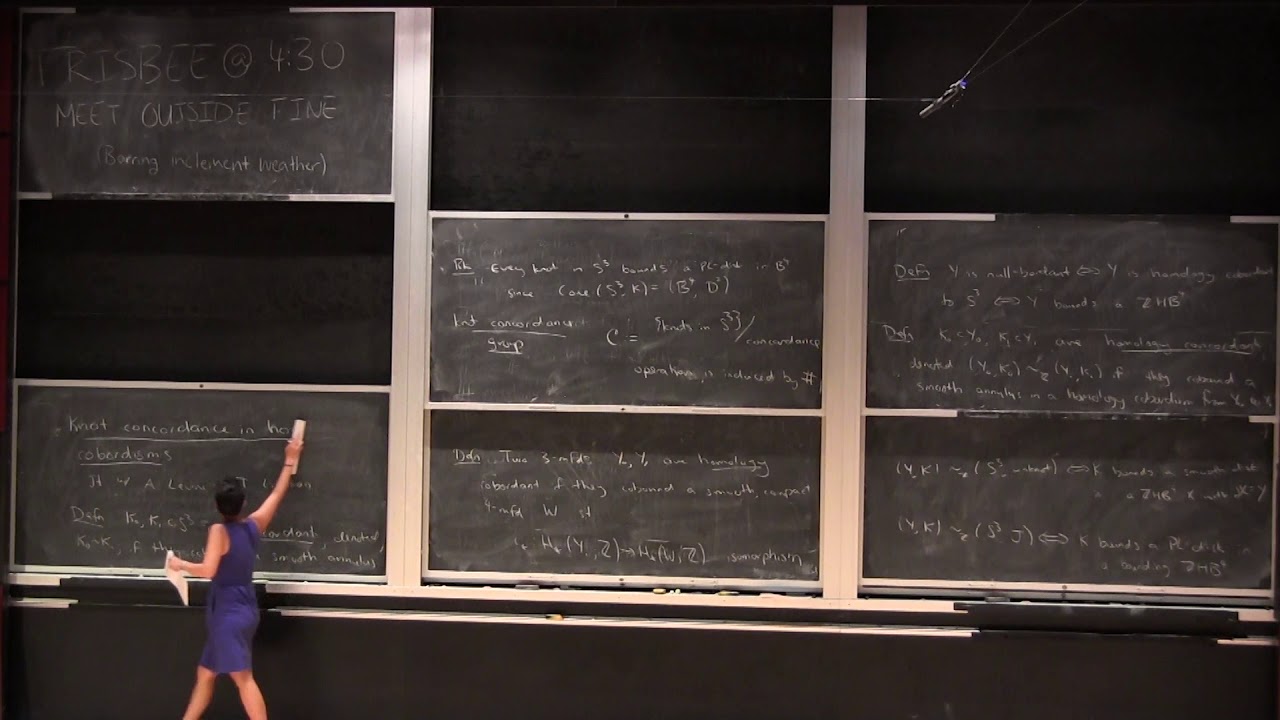 FRISBEE @ 4:30
MEET OUTSIDE FINE
(Barring inclement weather)
Knot concordance in ho
cobordisms
Jt w A Levine, T
Defn K₀, K₁ ⊂ S³ concordant, denoted
K₀ ~ K₁, if they smooth annulus
Rk Every knot in S³ bounds a PL-disk in B⁴
since Cone(S³, K) = (B⁴, D²)
knot concordance
group
C := {knots in S³}/concordance
operation is induced by #
Defn Two 3-mfds Y₀, Y₁ are homology
cobordant if they cobound a smooth, compact
4-mfd W st
i* : H*(Yᵢ; Z) → H*(W; Z) isomorphism
Defn Y is null-bordant ⟺ Y is homology cobordant
to S³ ⟺ Y bounds a ZHB⁴
Defn K₀ ⊂ Y₀, K₁ ⊂ Y₁ are homology concordant,
denoted (Y₀, K₀) ~Z (Y₁, K₁) if they cobound a
smooth annulus in a homology cobordism from Y₀ to Y₁
(Y, K) ~Z (S³, unknot) ⟺ K bounds a smooth disk
in a ZHB⁴ X with ∂X = Y
(Y, K) ~Z (S³, J) ⟺ K bounds a PL-disk in
a bounding ZHB⁴